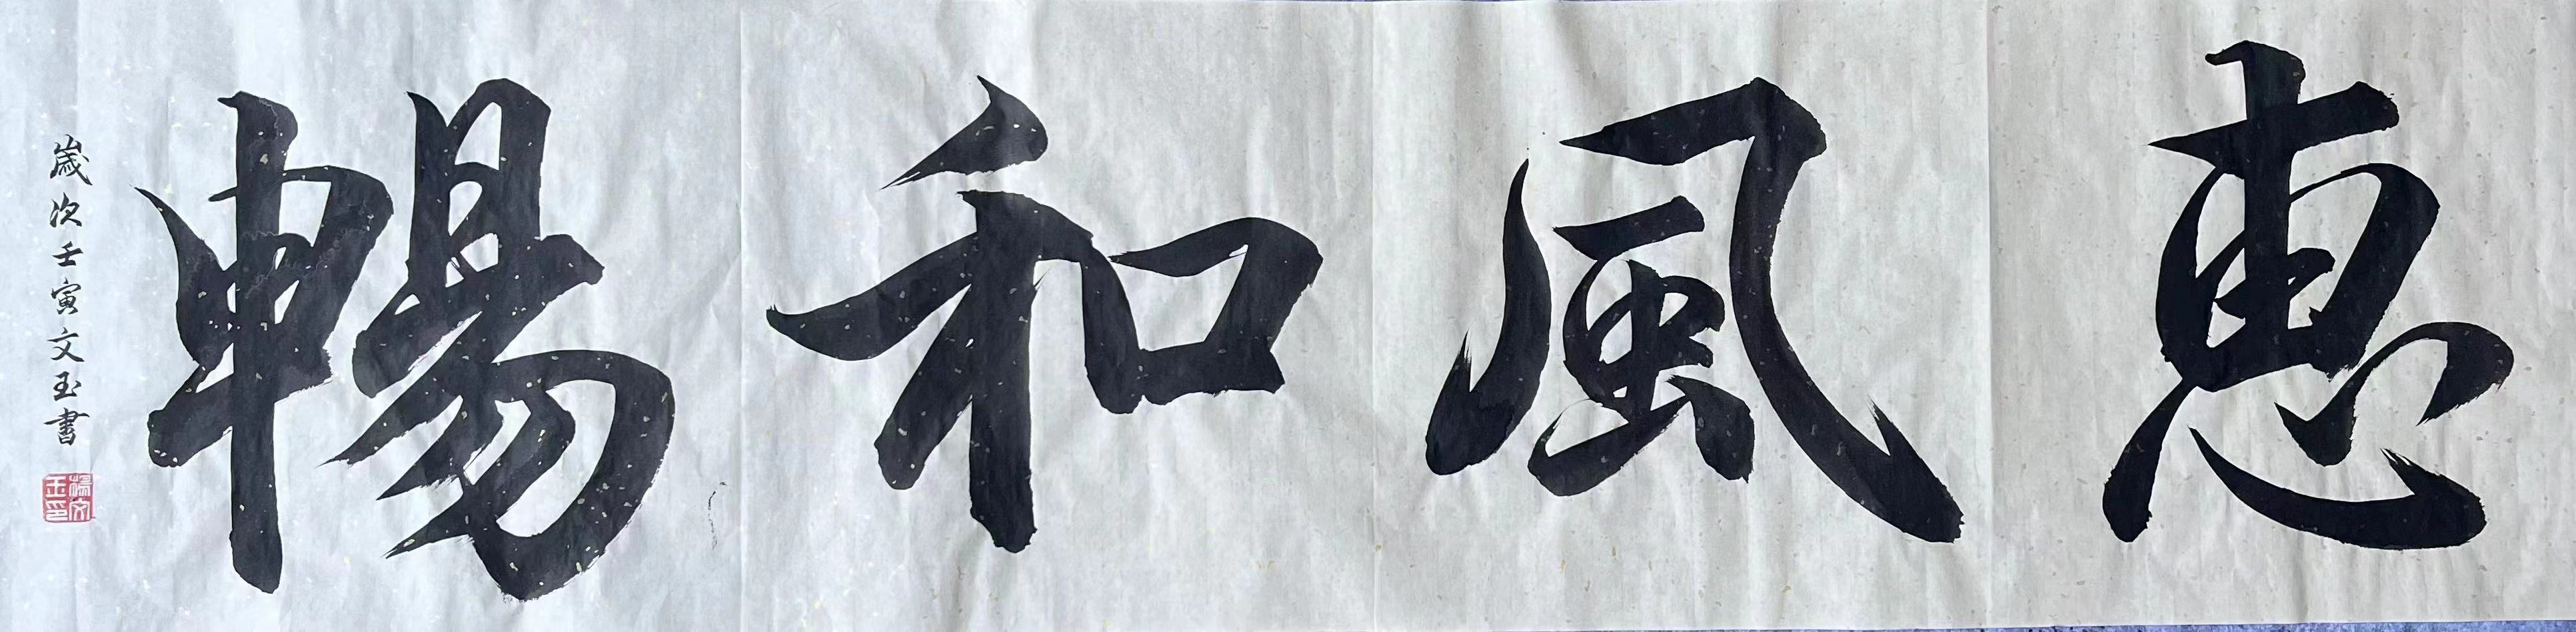 惠風和暢
歲次壬寅文玉書
楊文玉印